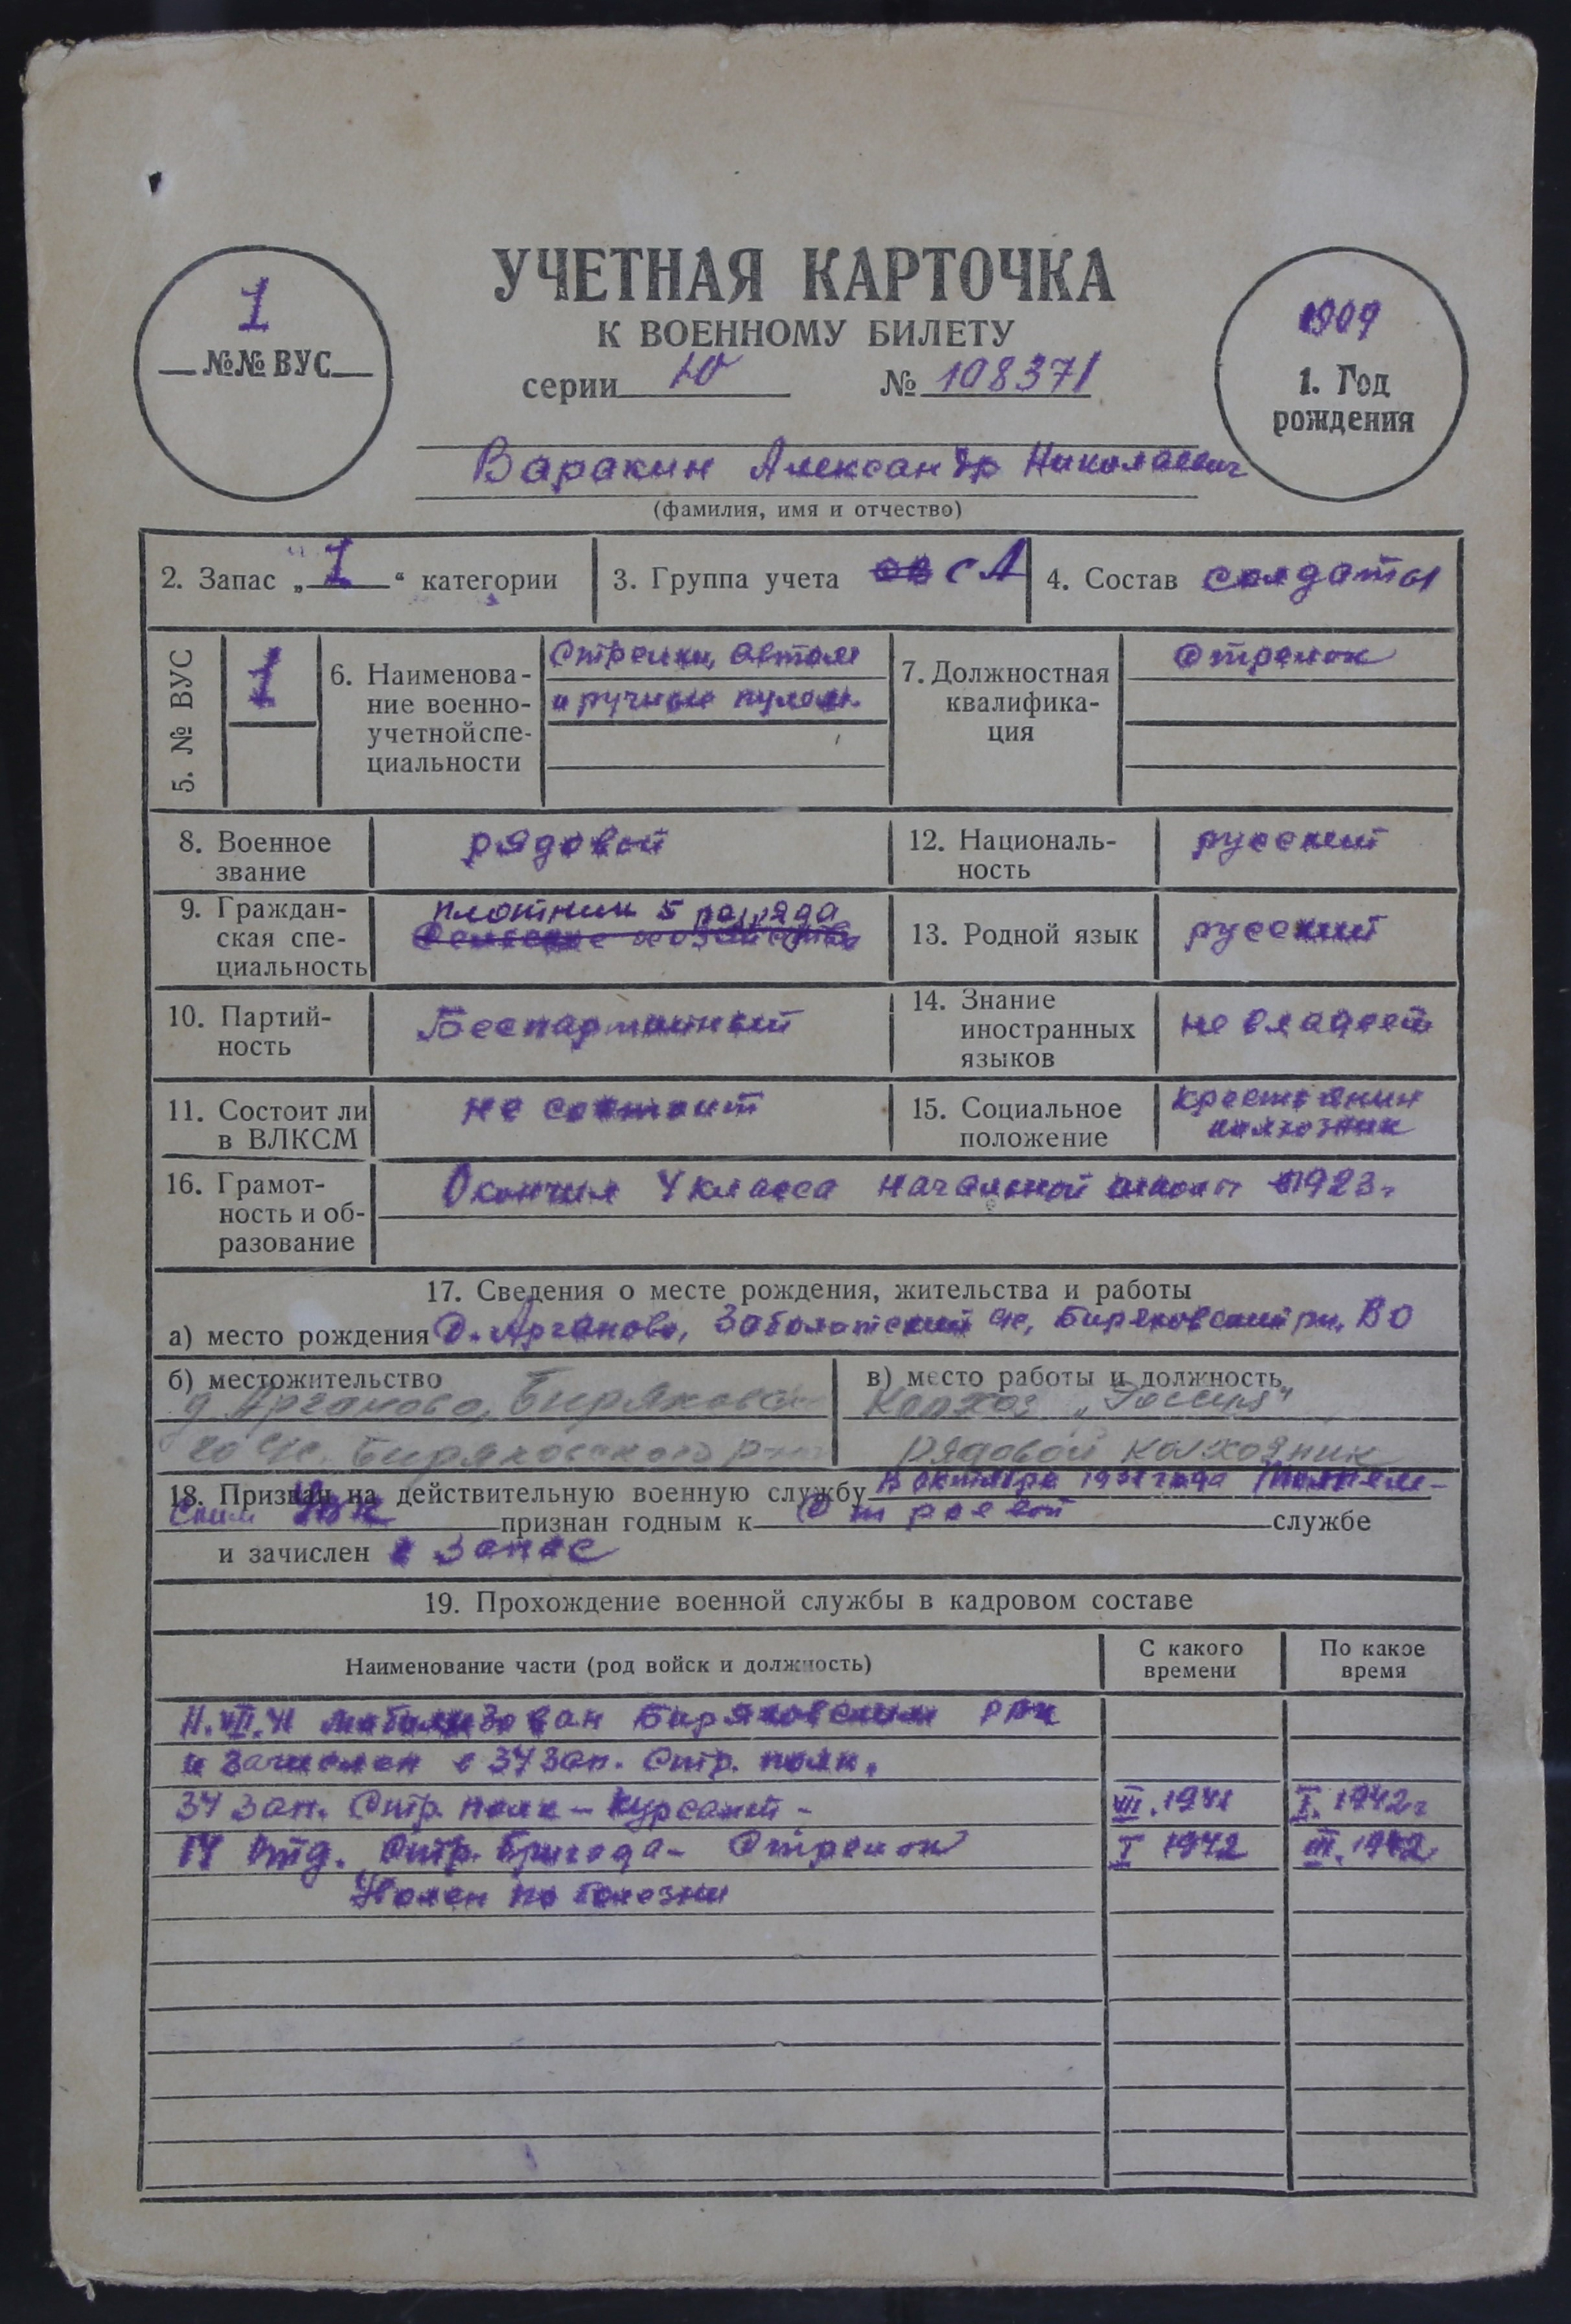 УЧЕТНАЯ КАРТОЧКА
К ВОЕННОМУ БИЛЕТУ
серии Ю № 108371
1
№№ ВУС
1909
1. Год
рождения
Варакин Александр Николаевич
(фамилия, имя и отчество)
2. Запас „1“ категории
3. Группа учета СА
4. Состав солдаты
5. № ВУС
1
6. Наименова-
ние военно-
учетной спе-
циальности
Стрелки, автом
и ручные пулем.
7. Должностная
квалифика-
ция
Стрелок
8. Военное
звание
рядовой
12. Националь-
ность
русский
9. Граждан-
ская спе-
циальность
плотник 5 разряда
Сельское хозяйство
13. Родной язык
русский
10. Партий-
ность
Беспартийный
14. Знание
иностранных
языков
не владеет
11. Состоит ли
в ВЛКСМ
не состоит
15. Социальное
положение
крестьянин
колхозник
16. Грамот-
ность и об-
разование
Окончил 4 класса начальной школы в 1923г
17. Сведения о месте рождения, жительства и работы
а) место рождения д. Арганово, Заболотский с/с, Биряковский рн, ВО
б) местожительство
д. Арганово, Биряковско-
го с/с. Биряковского р-на
в) место работы и должность
Колхоз „Россия"
рядовой колхозник
18. Призван на действительную военную службу В октябре 1931 года
ским РВК признан годным к Строевой службе
и зачислен в запас
19. Прохождение военной службы в кадровом составе
Наименование части (род войск и должность)
С какого
времени
По какое
время
11.VIII.41 мобилизован Биряковским РВК
и зачислен в 34 Зап. Стр. полк.
34 Зап. Стр. полк – курсант – VIII.1941 I.1942г
14 отд. Стр. бригада – Стрелок I 1942 III.1942
Уволен по болезни